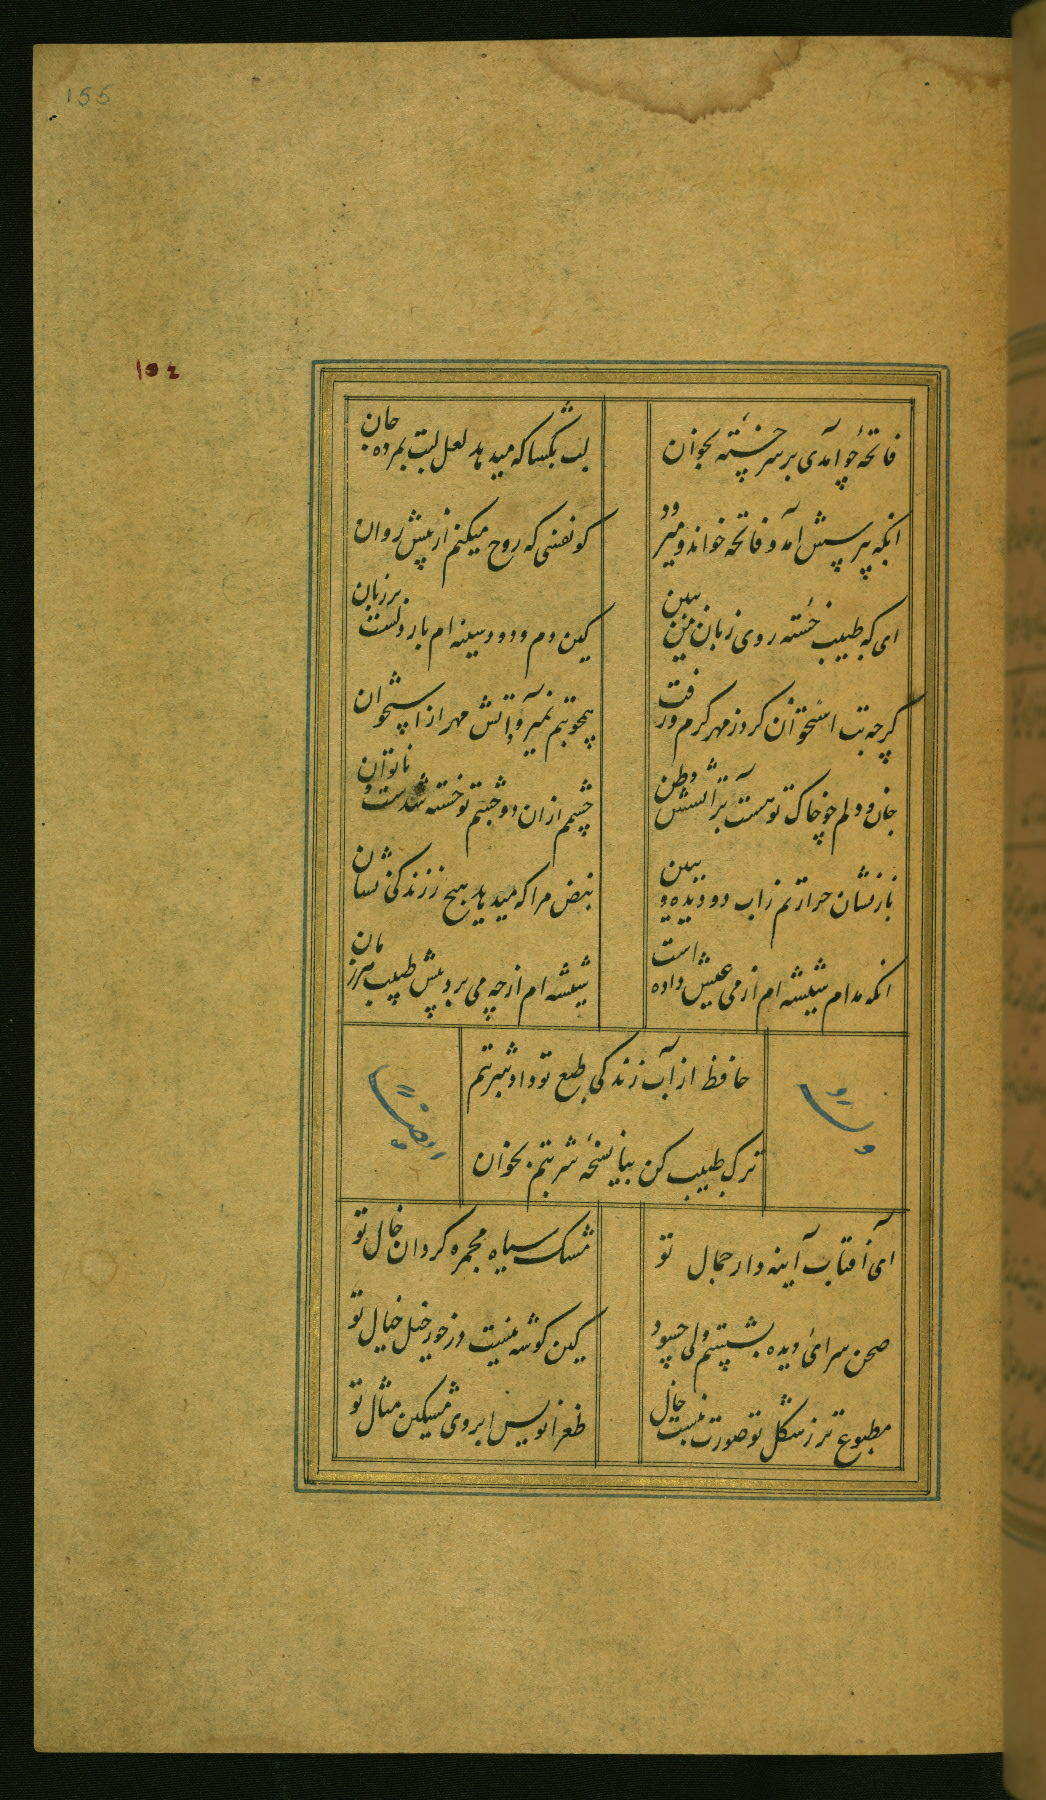 155
۱۵۴
فاتحهٔ چو آمدی بر سر خستهٔ بخوان
لب بگشا که میدهد لعل لبت بمرده جان
انکه بپرسش آمد و فاتحه خواند و میرود
کو نفسی که روح میکنم از پیش روان
ای که طبیب خستهٔ روی زبان من ببین
کین دم و دود سینه ام بار دلست بر زبان
گرچه تب استخوان کرد ز مهر گرم و رفت
همچو تبم نمیرود آتش مهر از استخوان
جان و دلم چو خاک تو هست بر آتشش وطن
چشمم ازان دو چشم تو خسته شدست و ناتوان
باز نشان حرارتم ز اب دو دیده و ببین
نبض مرا که میدهد هیچ ز زندگی نشان
انکه مدام شیشه ام از می عیش داده است
شیشه ام از چه می برد پیش طبیب هر زمان
حافظ از آب زندکی طبع تو داد شربتم
ترک طبیب کن بیا نسخهٔ شربتم بخوان
وله
ایضا
ای آفتاب آینه دار جمال تو
مشک سیاه مجمره کردان خال تو
صحن سرای دیده بشستم ولی چسود
کین کوشه نیست در خور خیل خیال تو
مطبوع تر ز شکل تو صورت نبست خال
طغرا نویس ابروی مشکین مثال تو